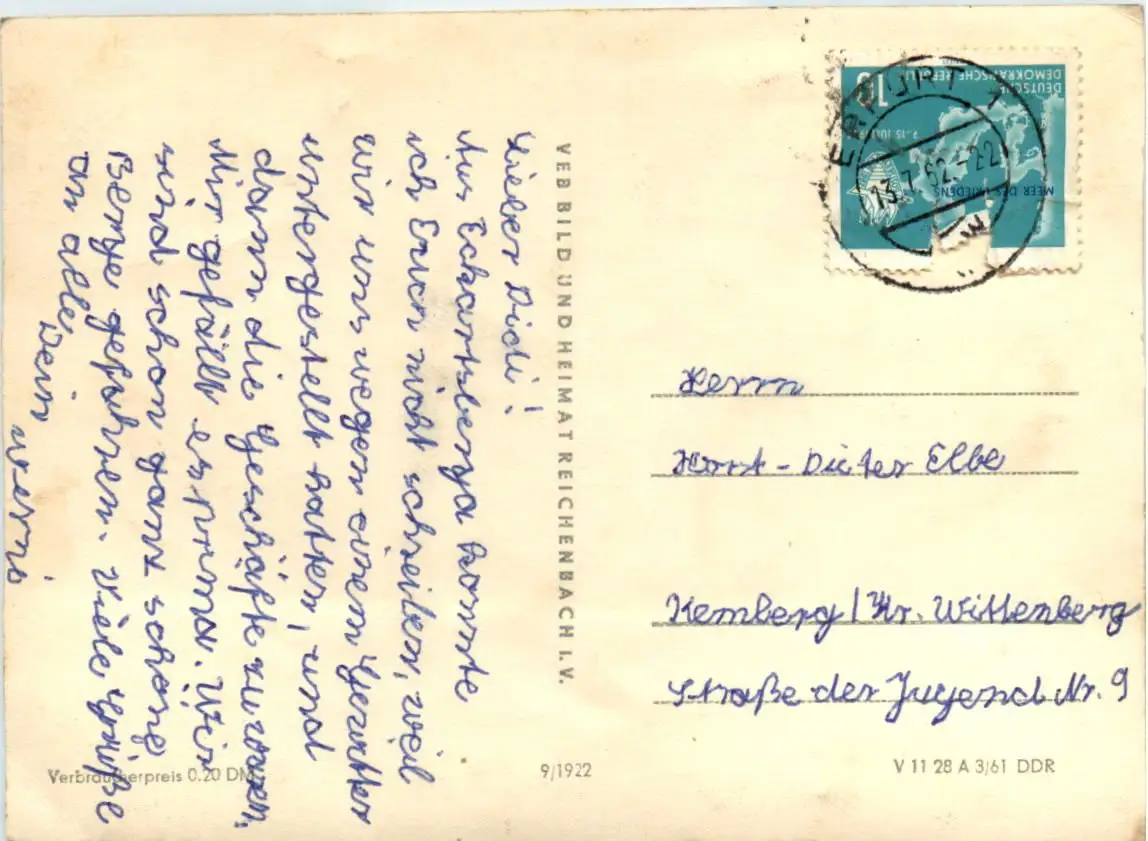 Lieber Didi!
Aus Eckartsberga konnte
ich Euch nicht schreiben, weil
wir uns wegen einem Gewitter
untergestellt hatten, und
dann die Geschäfte zu waren.
Mir gefällt es prima. Wir
sind schon ganz schöne
Berge gefahren. Viele Grüße
an alle,
Dein
Werni
VEB BILD UND HEIMAT REICHENBACH I. V.
DEUTSCHE
DEMOKRATISCHE REPUBLIK
10
MEER DES FRIEDENS
ERFURT
13.7.62-22
Herrn
Horst-Dieter Elbe
Kemberg/Kr. Wittenberg
Straße der Jugend Nr. 9
Verbraucherpreis 0.20 DM
9/1922
V 11 28 A 3/61 DDR